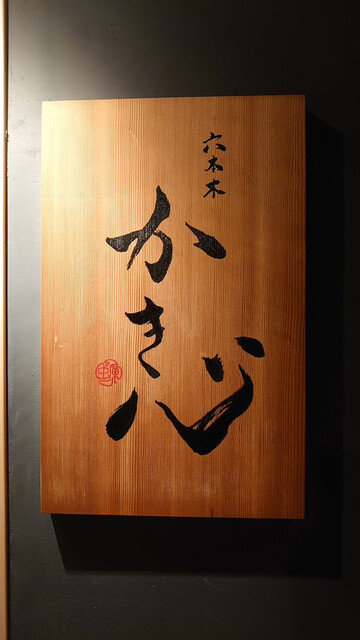 六本木
かき心